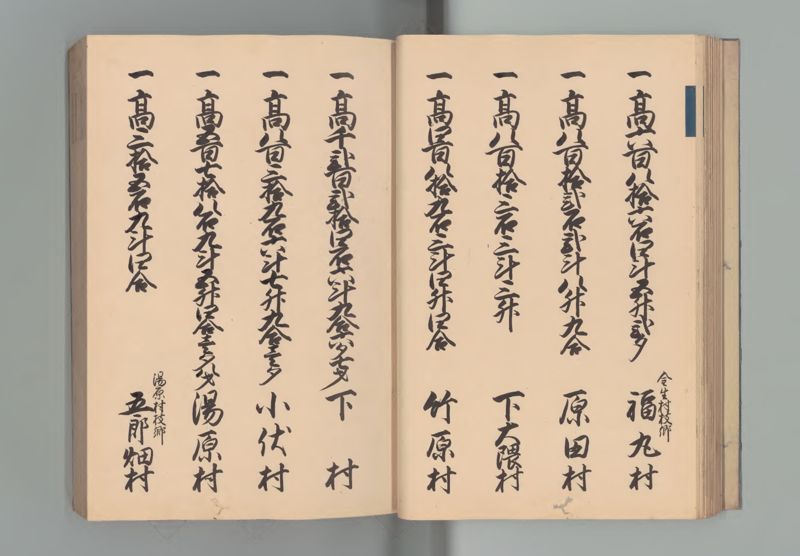 一 高六百八拾六石四斗五升弐夕
金生村枝郷
福丸村
一 高八百拾弐石弐斗八升九合
原田村
一 高八百拾三石三斗三升
下大隈村
一 高四百八拾九石三斗四升四合
竹原村
一 高千弐百弐拾四石六斗九合六夕七才
下村
一 高八百三拾九石六斗七升九合壱夕
小伏村
一 高五百七拾八石九斗五升四合壱夕八才
湯原村
一 高三拾五石九斗四合
湯原村枝郷
五郎畑村